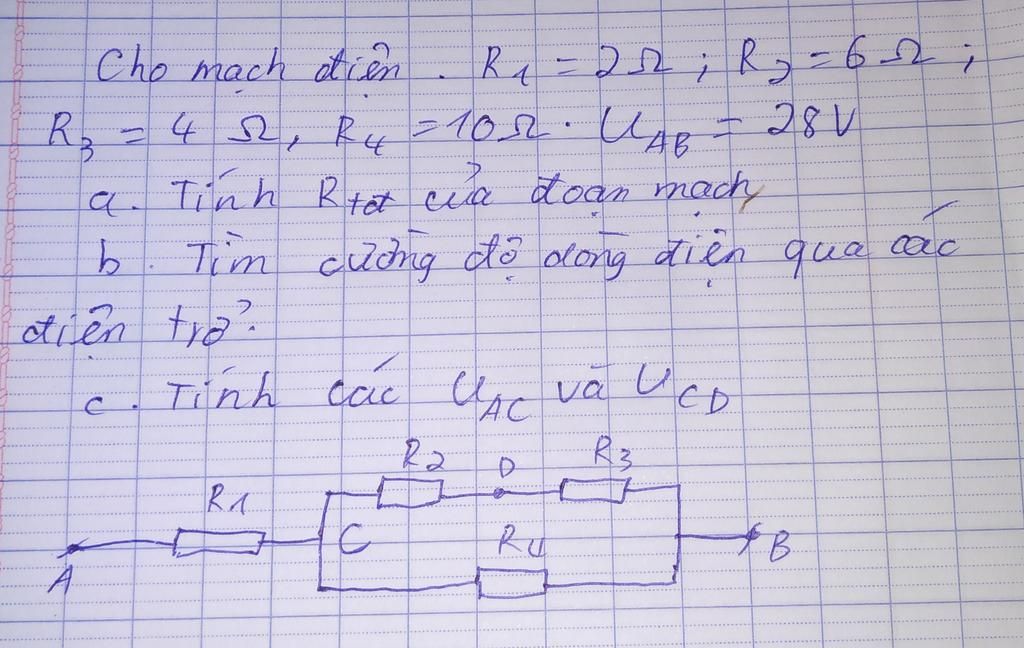 Cho mạch điện. R1 = 2Ω; R2 = 6Ω;
R3 = 4 Ω, R4 = 10Ω. UAB = 28V
a. Tính Rtđ của đoạn mạch
b. Tìm cường độ dòng điện qua các
điện trở?
c. Tính các UAC và UCD
R2 D R3
R1
C R4
A B